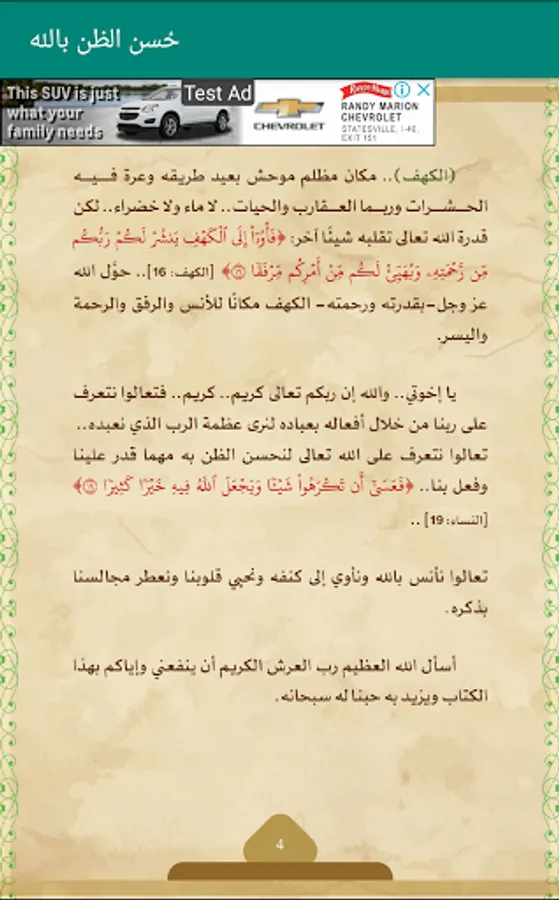 حُسن الظن بالله
This SUV is just
what your
family needs
Test Ad
CHEVROLET
RANDY MARION
RANDY MARION
CHEVROLET
STATESVILLE, I-40,
EXIT 151
(الكهف).. مكان مظلم موحش بعيد طريقه وعرة فـــيـــه
الحـــشـــرات وربـــما العـــقارب والحيات.. لا ماء ولا خضراء.. لكن
قدرة الله تعالى تقلبه شيئًا آخر: ﴿فَأْوُۥٓا۟ إِلَى ٱلْكَهْفِ يَنشُرْ لَكُمْ رَبُّكُم
مِّن رَّحْمَتِهِۦ وَيُهَيِّئْ لَكُم مِّنْ أَمْرِكُم مِّرْفَقًا ۝١٦﴾ [الكهف: 16].. حوَّل الله
عز وجل-بقدرته ورحمته- الكهف مكانًا للأنس والرفق والرحمة
واليسر.
يا إخوتي.. والله إن ربكم تعالى كريم.. كريم.. فتعالوا نتعرف
على ربنا من خلال أفعاله بعباده لنرى عظمة الرب الذي نعبده..
تعالوا نتعرف على الله تعالى لنحسن الظن به مهما قدر علينا
وفعل بنا.. ﴿فَعَسَىٰٓ أَن تَكْرَهُوا۟ شَيْـًٔا وَيَجْعَلَ ٱللَّهُ فِيهِ خَيْرًا كَثِيرًا ۝١٩﴾
[النساء: 19] ..
تعالوا نأنس بالله ونأوي إلى كنفه ونحيي قلوبنا ونعطر مجالسنا
بذكره.
أسأل الله العظيم رب العرش الكريم أن ينفعني وإياكم بهذا
الكتاب ويزيد به حبنا له سبحانه.
4